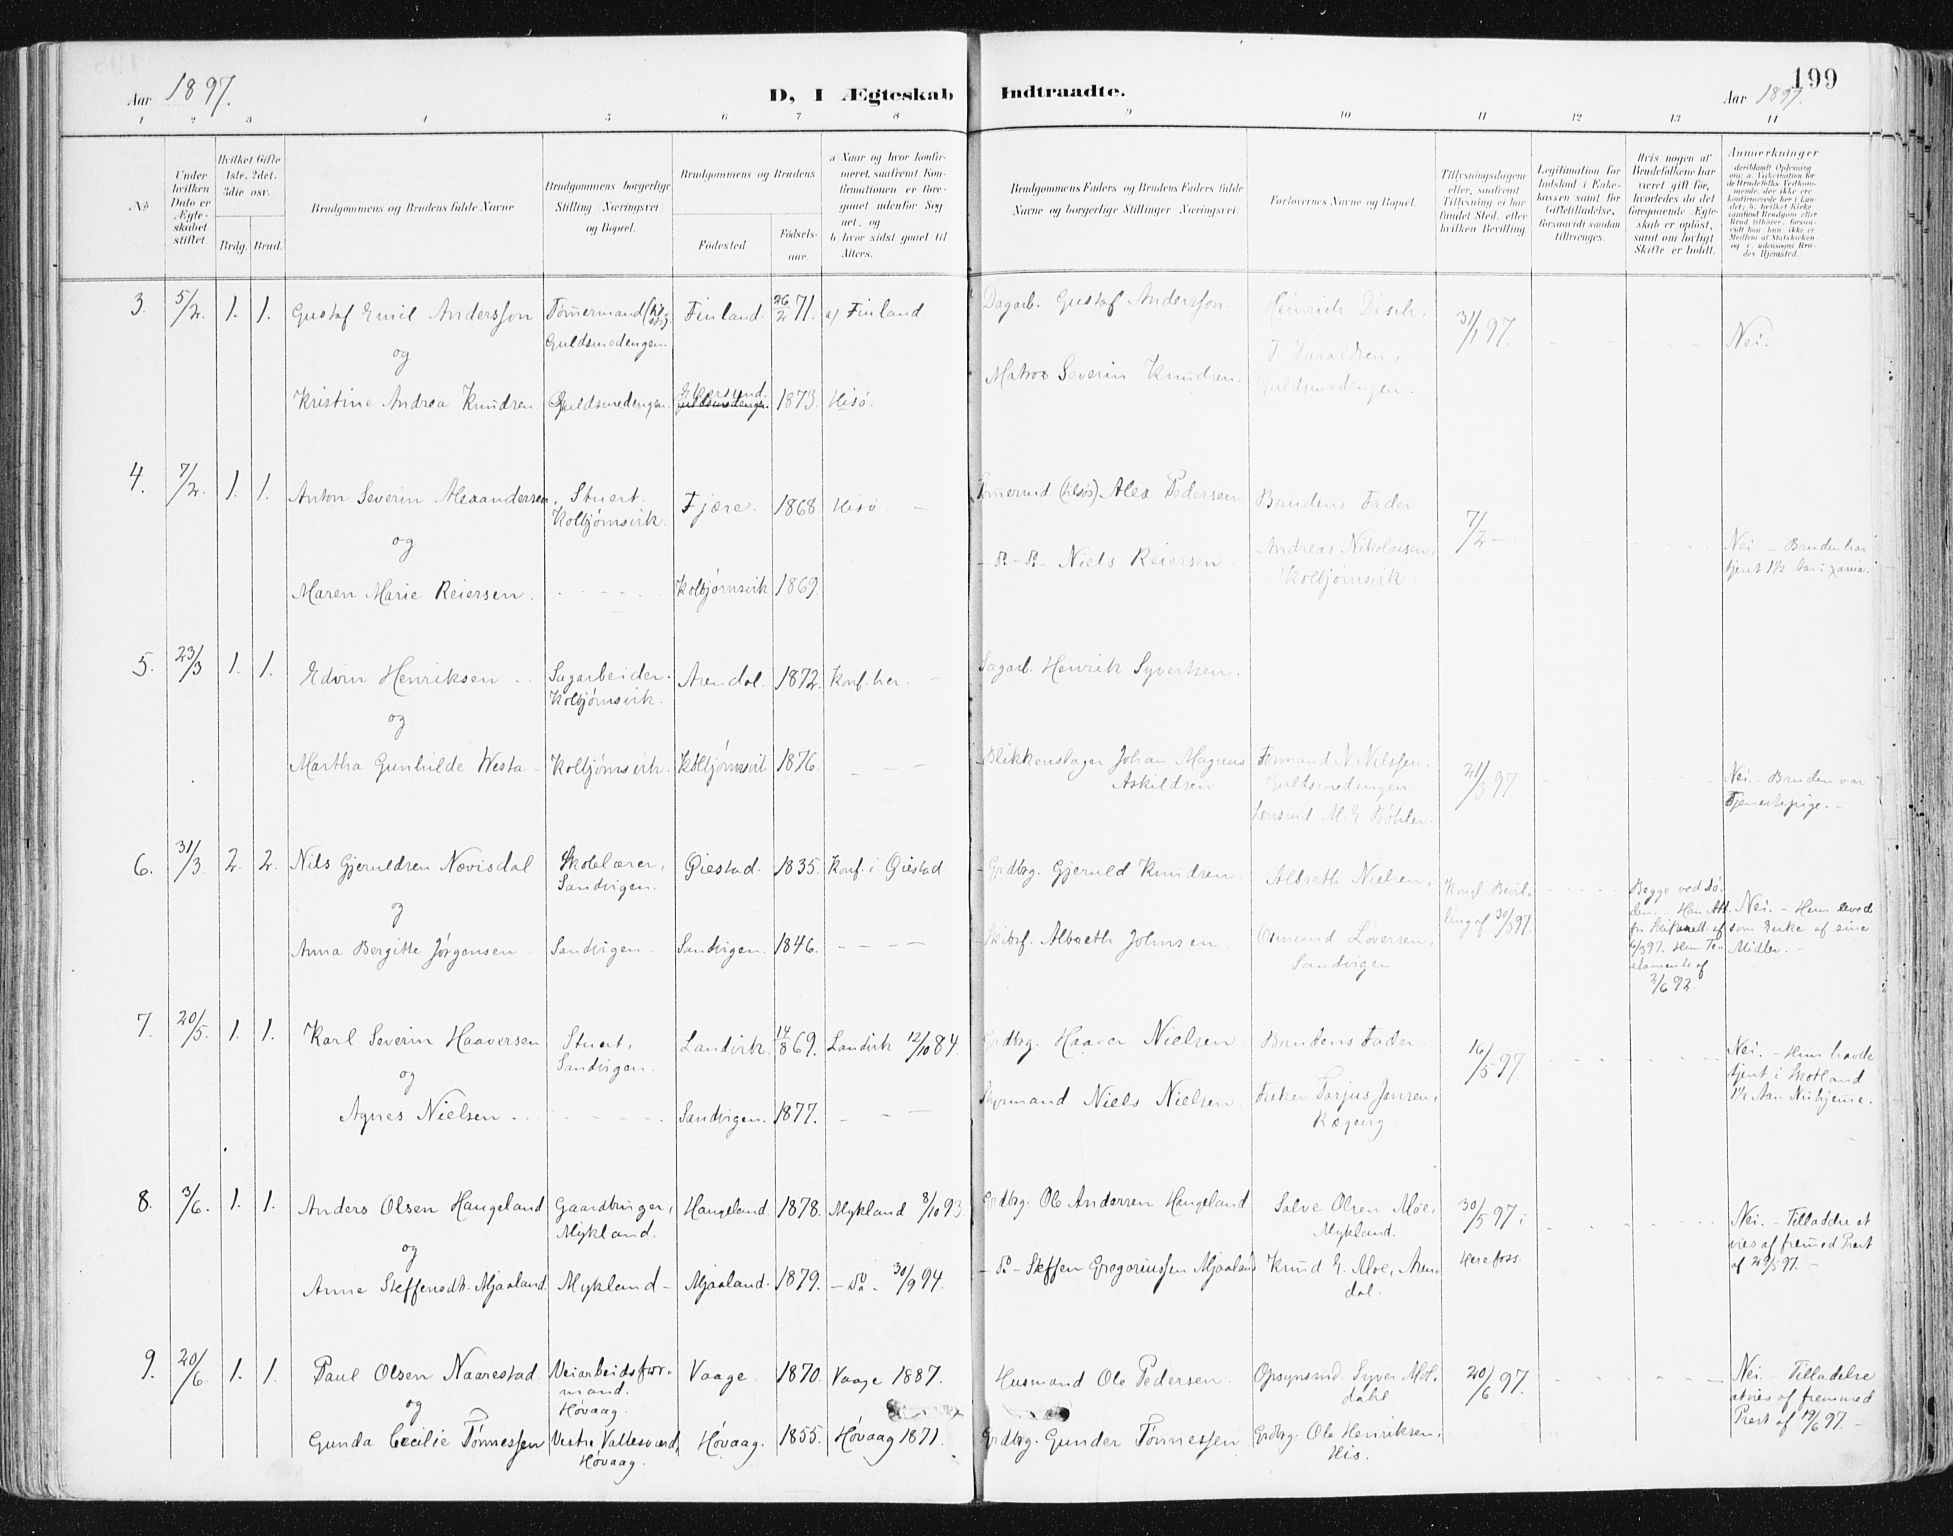 Aar 1897.
D, I Ægteskab Indtraadte.
199
Aar 1897.
1 2 3 4 5 6 7 8 9 10 11 12 13 14
No
Under hvilken Dato er Ægteskabet stiftet.
Hvilket Gifte 1ste, 2det, 3die osv.
Brdg. Brud.
Brudgommens og Brudens fulde Navne
Brudgommens borgerlige Stilling Næringsvei og Bopæl.
Brudgommens og Brudens
Fødested. Fødselsaar.
a Naar og hvor konfirmeret, samt om Konfirmationen er foregaaet udenfor Sognet, og
b hvor sidst gaaet til Alters.
Brudgommens Faders og Brudens Faders fulde Navne og borgerlige Stillinger Næringsvei.
Forlovernes Navne og Bopæl.
Tillysningsdagene eller, saafremt Tillysning ei har fundet Sted, efter hvilken Bevilling
Legitimation for Indskud i Enkekassen samt for Giftetilladelse, forsaavidt saadan tiltrænges.
Hvis nogen af Brudefolkene har været gift før, hvorledes da det foregaaende Ægteskab er opløst, samt om lovligt Skifte er holdt.
Anmerkninger
3. 5/2. 1. 1. Gustaf Emil Andersson Tømermand Guldsmedengen. Finland. 26/2 71. a) Finland. Dagarb. Gustaf Andersson. Heinrich Disch, T. Taraldsen, Guldsmedengen. 31/1 97. Nei.
og
Kristine Andrea Knudsen. Guldsmedengen. Ekersund 1873. Hisö. Matros Severin Knudsen.
4. 7/2. 1. 1. Anton Severin Alexandersen, Stuert. Kolbjörnsvik. Fjære. 1868. Hisö. Tømermd. (Hisö) Alex Pedersen. Brudens Fader 7/2
og
Maren Marie Reiersen. Kolbjörnsvik 1869. Do - Do - Niels Reiersen. Andreas Nikolaisen, Kolbjörnsvik. Nei. - Bruden har tjent 1½ Aar i Xania.
5. 23/3 1. 1. Edvin Henriksen Sagarbeider. Kolbjörnsvik. Arendal. 1872. Konf. her. Sagarb. Henrik Syvertsen.
og
Martha Gunhilde Westa Kolbjörnsvik. Kolbjörnsvik 1876. Blikkenslager Johan Magnus Askildsen. Formand N. Nilssen, Guldsmedengen. Lensmd M. E. Bøhler. 21/3 97. Nei. - Bruden var Tjenestepige. -
6. 31/3 2. 2. Nils Gjeruldsen Nævisdal Skolelærer, Sandvigen. Öiestad. 1835. Konf. i Öiestad Grdbrg. Gjeruld Knudsen Albreth Nielsen, Kongl. Bevilling af 30/3 97. Begge ved Döden. Han Att. fra Skifterett af 6/3 97. Hun Testamente af 2/6 92. Nei. - Hun leved som Enke af sine Midler. -
og
Anna Bergitte Jørgensen Sandvigen Sandvigen. 1846. Skibsf. Albreth Johnsen Osmund Loversen, Sandvigen.
7. 20/5. 1. 1. Karl Severin Haaversen Stuert, Sandvigen. Landvik. 14/8 69. Landvik 12/10 84. Grdbrg. Haaver Nielsen Brudens Fader 16/5 97. Nei. - Hun havde tjent i Skotland 1½ Aar. Nu hjeme.
og
Agnes Nielsen Sandvigen. 1877. Styrmand Niels Nielsen. Fisker Torjus Jensen, Rægevig.
8. 3/6. 1. 1. Anders Olsen Haugeland Gaardbruger, Mykland. Haugeland. 1878. Mykland 8/10 93 Grdbrg. Ole Andersen Haugeland. Salve Olsen Moe, Mykland. 30/5 97 i Herefoss. Nei. - Tilladelse at vies af fremed Prest af 29/5 97. -
og
Anne Steffensdt. Mjaaland. Mykland - Mjaaland. 1879. - Do - 30/9 94. - Do - Steffen Gregoriussen Mjaaland Knud E. Moe, Arendal.
9. 20/6. 1. 1. Paul Olsen Naarestad Veiarbeidsformand. Høvaag. Vaage. 1870. Vaage 1887. Husmand Ole Pedersen. Opsynsmd. Syver Moldahl 20/6 97. Nei. - Tilladelse at vies af fremmed Prest af 19/6 97. -
og
Gunda Cecilie Tönnessen Vestre Vallesværd, Høvaag. Høvaag. 1855. Høvaag 1871. Grdbrg. Gunder Tönnessen Grdbrg. Ole Henriksen, His.